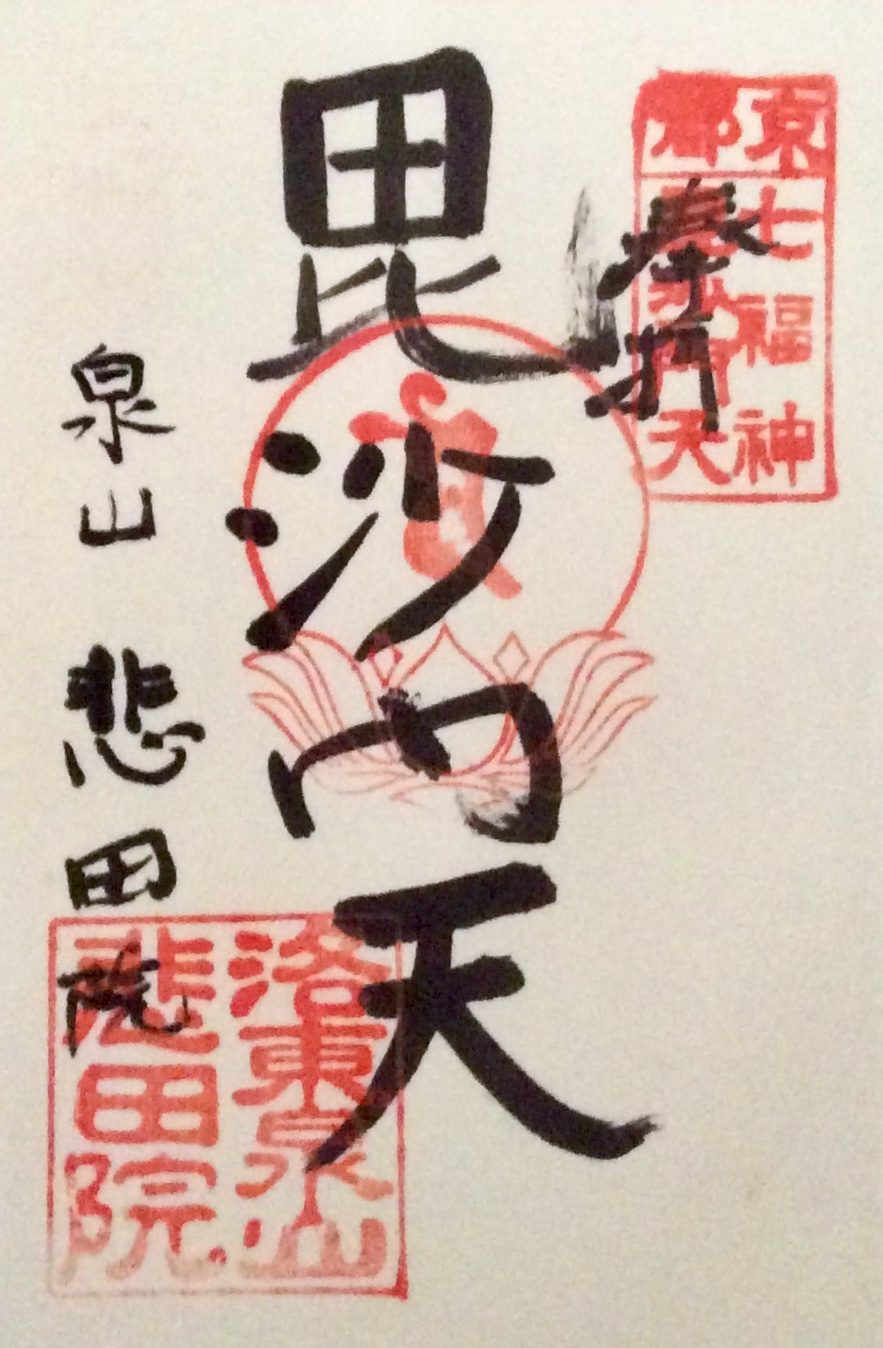 京都
七福神
毘沙門天
奉拝
毘沙門天
泉山 悲田院
洛東泉山
悲田院